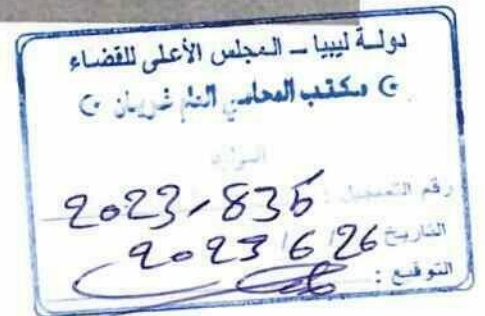 دولـة ليبيا ــ المجلس الأعلى للقضـاء
مكتب المحامي العام غريان
الوارد
رقم التسجيل : 2023-835
التاريخ 26/6/2023
التوقيع :